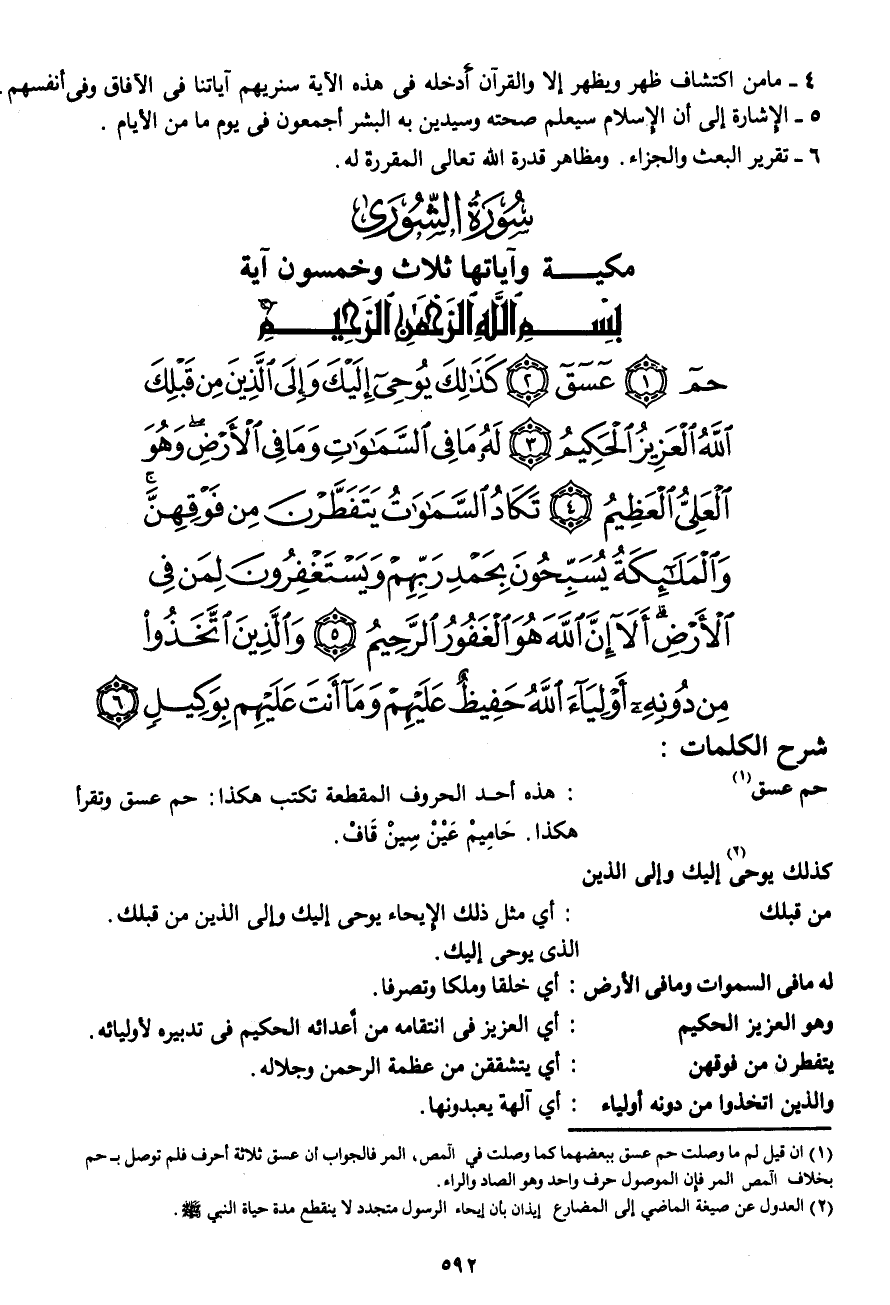 ٤ ـ مامن اكتشاف ظهر ويظهر إلا والقرآن أدخله فى هذه الآية سنريهم آياتنا فى الآفاق وفى أنفسهم .
٥ ـ الإشارة إلى أن الإسلام سيعلم صحته وسيدين به البشر أجمعون فى يوم ما من الأيام .
٦ ـ تقرير البعث والجزاء . ومظاهر قدرة الله تعالى المقررة له .
سُورَةُ الشُّورَىٰ
مكيـــة وآياتها ثلاث وخمسون آية
بِسْمِ ٱللَّهِ ٱلرَّحْمَٰنِ ٱلرَّحِيمِ
حمٓ ١ عٓسٓقٓ ٢ كَذَٰلِكَ يُوحِىٓ إِلَيْكَ وَإِلَى ٱلَّذِينَ مِن قَبْلِكَ
ٱللَّهُ ٱلْعَزِيزُ ٱلْحَكِيمُ ٣ لَهُۥ مَا فِى ٱلسَّمَٰوَٰتِ وَمَا فِى ٱلْأَرْضِۖ وَهُوَ
ٱلْعَلِىُّ ٱلْعَظِيمُ ٤ تَكَادُ ٱلسَّمَٰوَٰتُ يَتَفَطَّرْنَ مِن فَوْقِهِنَّۚ
وَٱلْمَلَٰٓئِكَةُ يُسَبِّحُونَ بِحَمْدِ رَبِّهِمْ وَيَسْتَغْفِرُونَ لِمَن فِى
ٱلْأَرْضِۗ أَلَآ إِنَّ ٱللَّهَ هُوَ ٱلْغَفُورُ ٱلرَّحِيمُ ٥ وَٱلَّذِينَ ٱتَّخَذُوا۟
مِن دُونِهِۦٓ أَوْلِيَآءَ ٱللَّهُ حَفِيظٌ عَلَيْهِمْ وَمَآ أَنتَ عَلَيْهِم بِوَكِيلٍ ٦
شرح الكلمات :
حم عسق(١) : هذه أحد الحروف المقطعة تكتب هكذا : حم عسق وتقرأ
هكذا . حَامِيمْ عَيْنْ سِينْ قَافْ .
كذلك يوحى(٢) إليك وإلى الذين
من قبلك : أي مثل ذلك الإيحاء يوحى إليك وإلى الذين من قبلك .
الذى يوحى إليك .
له مافى السموات ومافى الأرض : أي خلقا وملكا وتصرفا .
وهو العزيز الحكيم : أي العزيز فى انتقامه من أعدائه الحكيم فى تدبيره لأوليائه .
يتفطرن من فوقهن : أي يتشققن من عظمة الرحمن وجلاله .
والذين اتخذوا من دونه أولياء : أي آلهة يعبدونها .
(١) ان قيل لم ما وصلت حم عسق ببعضهما كما وصلت في المص، المر فالجواب أن عسق ثلاثة أحرف فلم توصل بـ حم
بخلاف المص المر فإن الموصول حرف واحد وهو الصاد والراء .
(٢) العدول عن صيغة الماضي إلى المضارع إيذان بأن إيحاء الرسول متجدد لا ينقطع مدة حياة النبي ﷺ .
٥٩٢